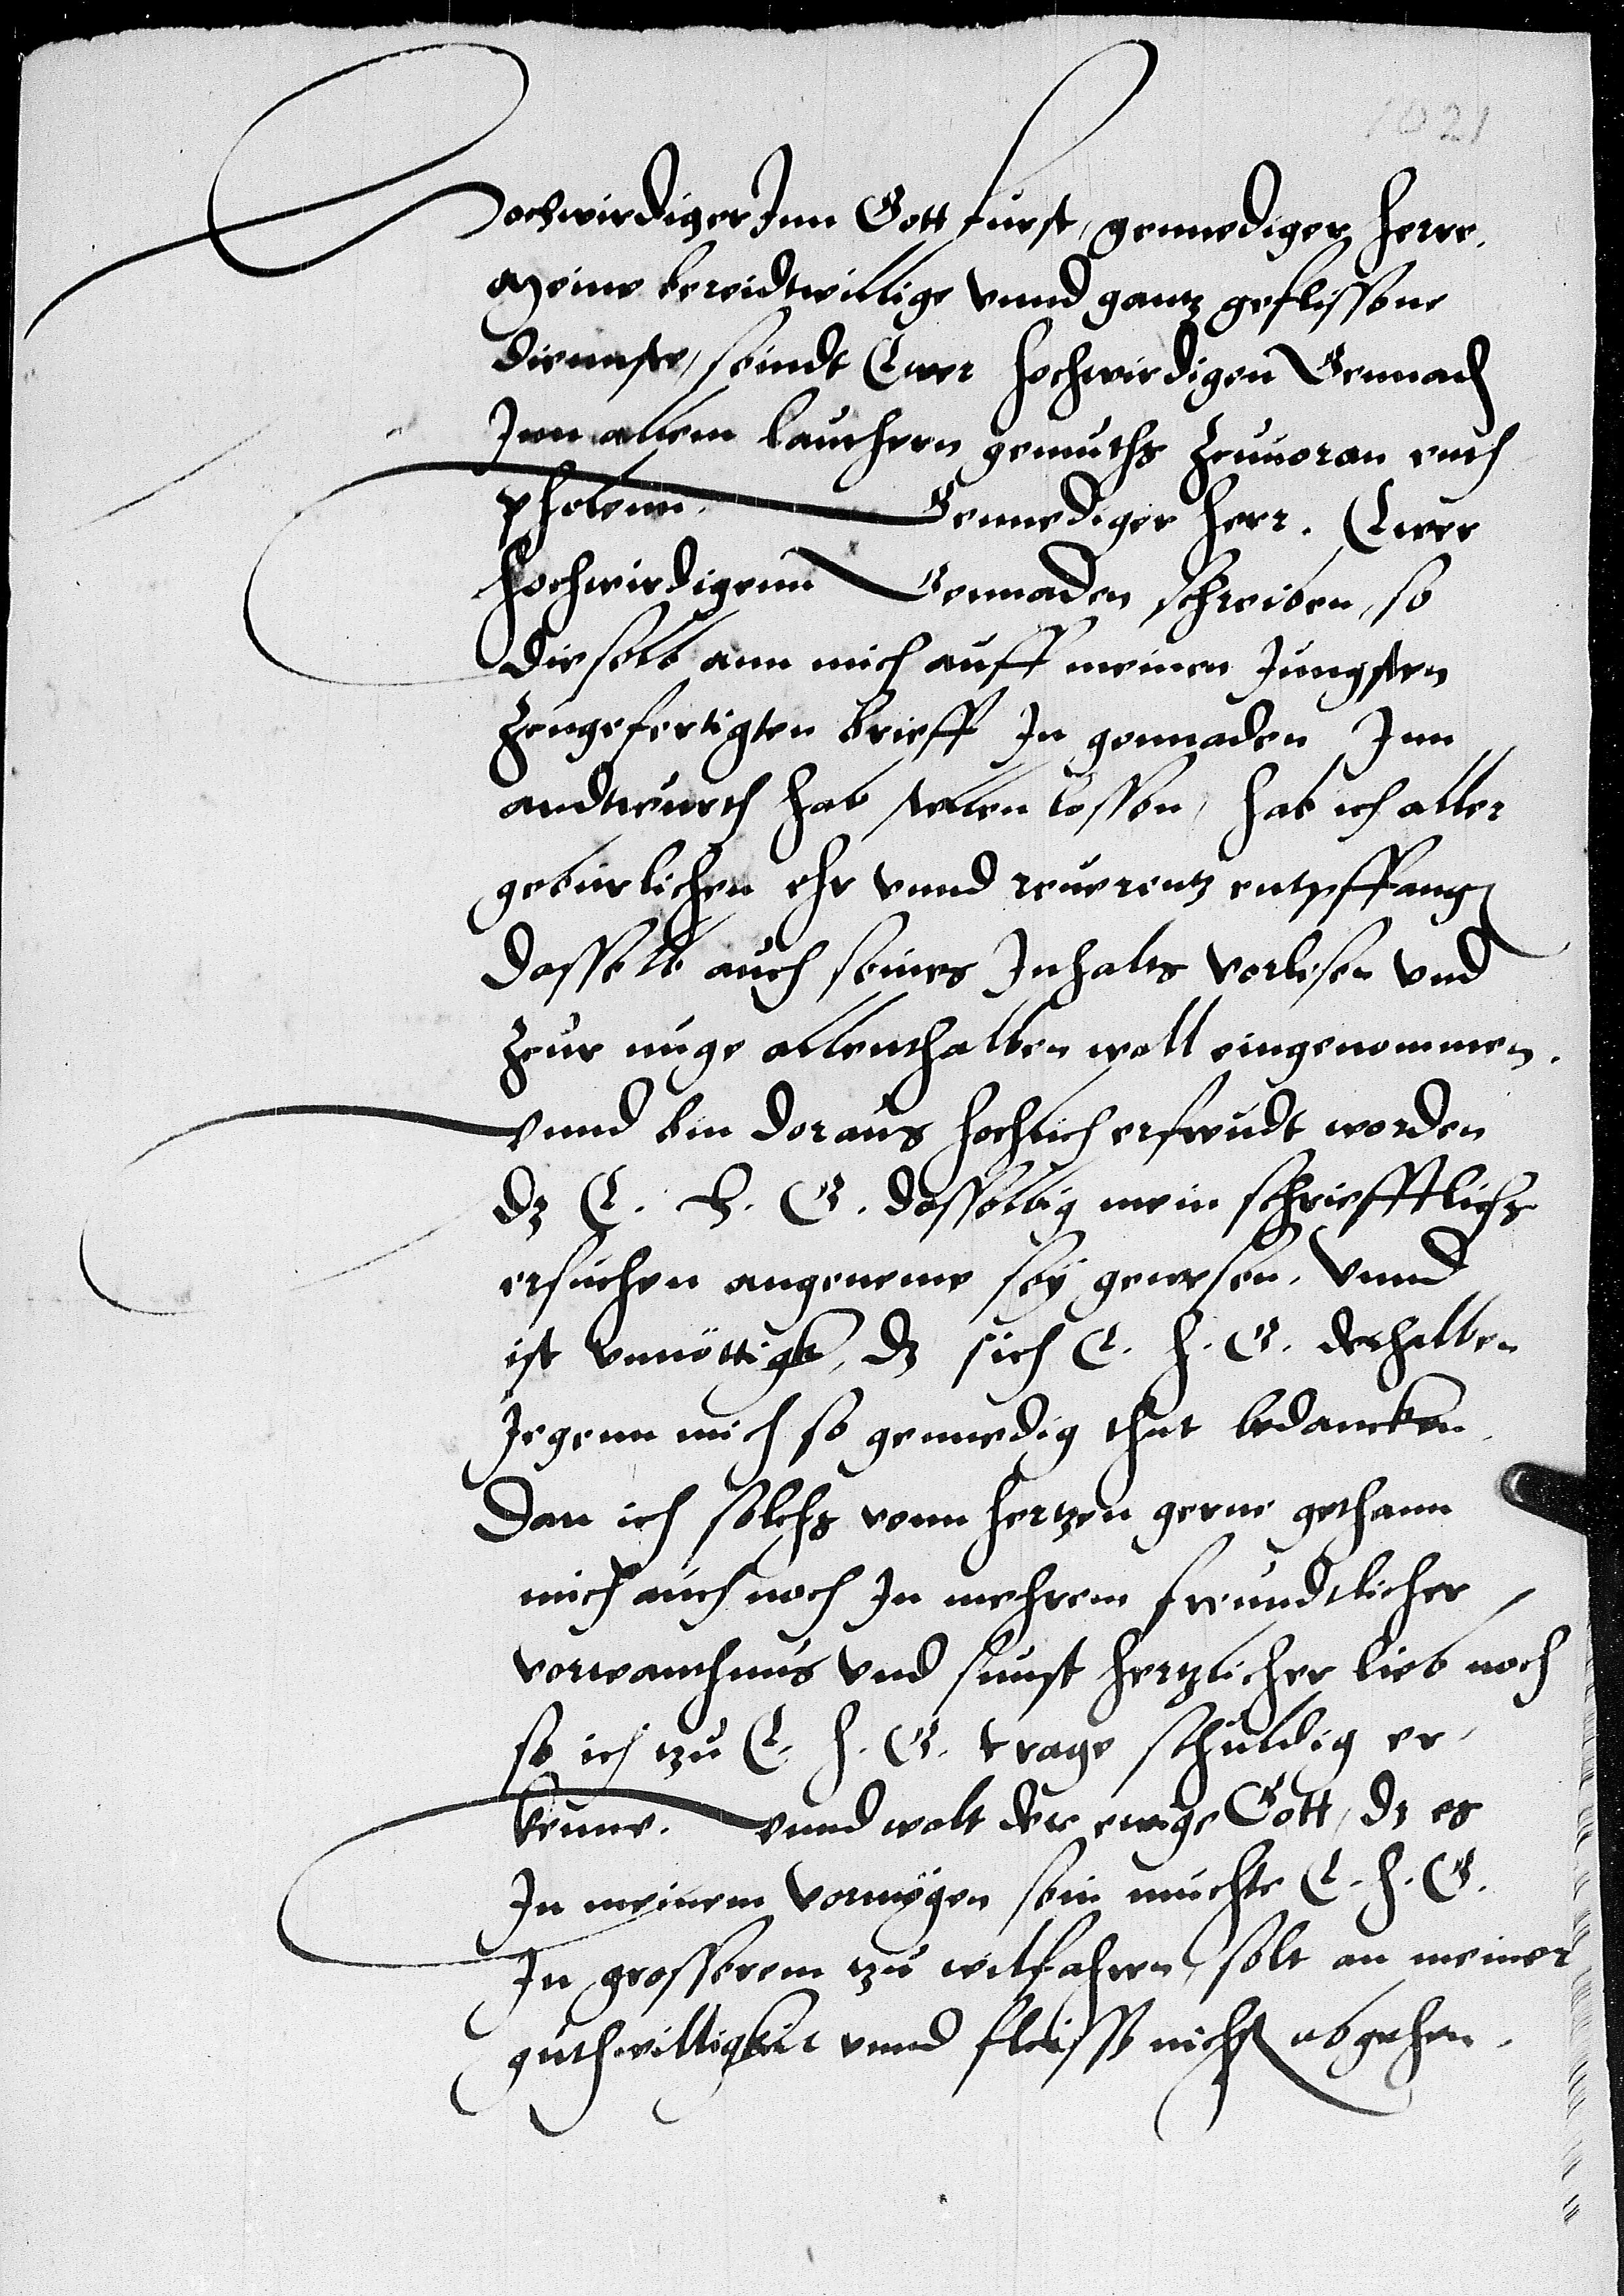 1021
Hochwirdiger Inn Gott furst, gennediger herre.
Meine bereidtwillige vnnd gantz geflissene
diennste, seindt Ewer hochwirdigen Gennad
Inn allem lauthern gemuths zeuuoran emh
pholenn. Gennediger herr. Ewer
hochwirdigenn Gennaden schreiben, so
dieselb ann mich auff meinen Jungsten
zeugefertigten brieff In gennaden Inn
andtwurth hat stellen lassen, hab ich aller
geburlichen ehr vnnd reuerentz entpffang
dasselb auch seines Inhalts vorlesen vnd
zeur nuge allenthalben woll eingenommen.
vnnd bin doraus hochlich erfreudt worden
dz E. H. G. dasselbig mein schriefftlichs
ersuchen angeneme sey gewesen. Vnnd
ist vnnöttigk, dz sich E. h. G. derhalben
Jegenn mich so gennedig thut bedancken.
Dan ich solchs vonn hertzen gerne gethann
mich auch noch In mehrem freundtlicher
vorwanthnus vnd sunst hertzlicher lieb noch
so ich tzu E. h. G. trage schuldig er,
kenne. vnnd wolt der ewige Gott, dz es
In meinem vormögen sein muchte E. h. G.
In grosserem tzu wilfahren, solt an meiner
guthwilligkeit vnnd fleiss nicht abgehen.